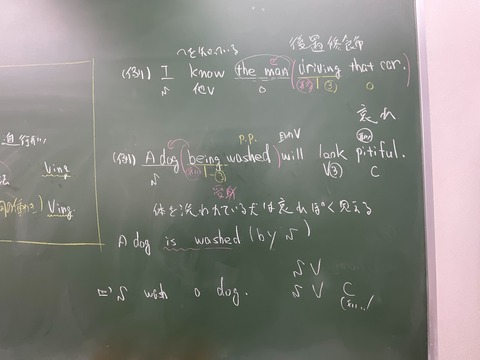 〜を知っている 後置修飾
(例1) I know the man (driving that car.)
S 他V O ③ O
進行形
哀れ
p.p. 助V
(例1) A dog (being washed) will look pitiful.
Ving
S V③ C
受動
Ving
体を洗われている犬は哀れっぽく見える
A dog is washed (by S)
S V
S with a dog. S V C